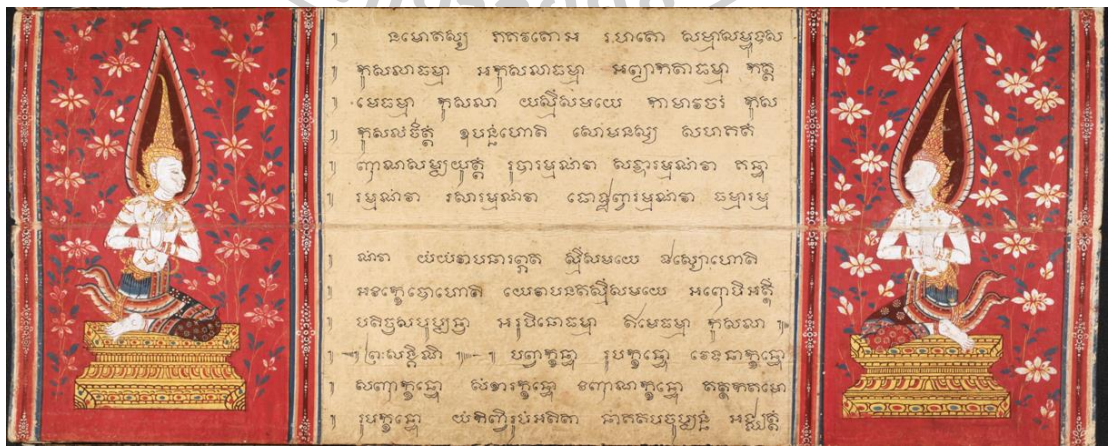 នមោតស្ស ភគវតោអ រហតោ សម្មាសម្ពុទ្ធស
កុសលាធម្មា អកុសលាធម្មា អព្យាកតាធម្មា កត
មេធម្មា កុសលា យស្មឹសមយេ កាមាវចរំ កុស
កុសលំចិត្តំ ឧបន្នំហោតិ សោមនស្ស សហគតំ
ញាណសម្បយុត្តំ រូបារម្មណំវា សទ្ទារម្មណំវា គន្ធា
រម្មណំវា រសារម្មណំវា ផោដ្ឋព្វារម្មណំវា ធម្មារម្ម
ណំវា យំយំវាបនារព្ភត ស្មឹសមយេ ផស្សោហោតិ
អវិក្ខេបោហោតិ យេវាបនតស្មឹសមយេ អញ្ញេបិអត្ថិ
បតិច្ចសមុប្បន្នា អរូបិនោធម្មា ឥមេធម្មា កុសលា
ព្រះសង្គិណិ បញ្ចក្ខន្ធា រូបក្ខន្ធោ វេទនាក្ខន្ធោ
សញ្ញាក្ខន្ធោ សំខារក្ខន្ធោ វិញ្ញាណក្ខន្ធោ តត្ថកតមោ
រូបក្ខន្ធោ យំកិញ្ចិរូបំអតីតា នាគតបច្ចុប្បន្នំ អជ្ឈត្តំ